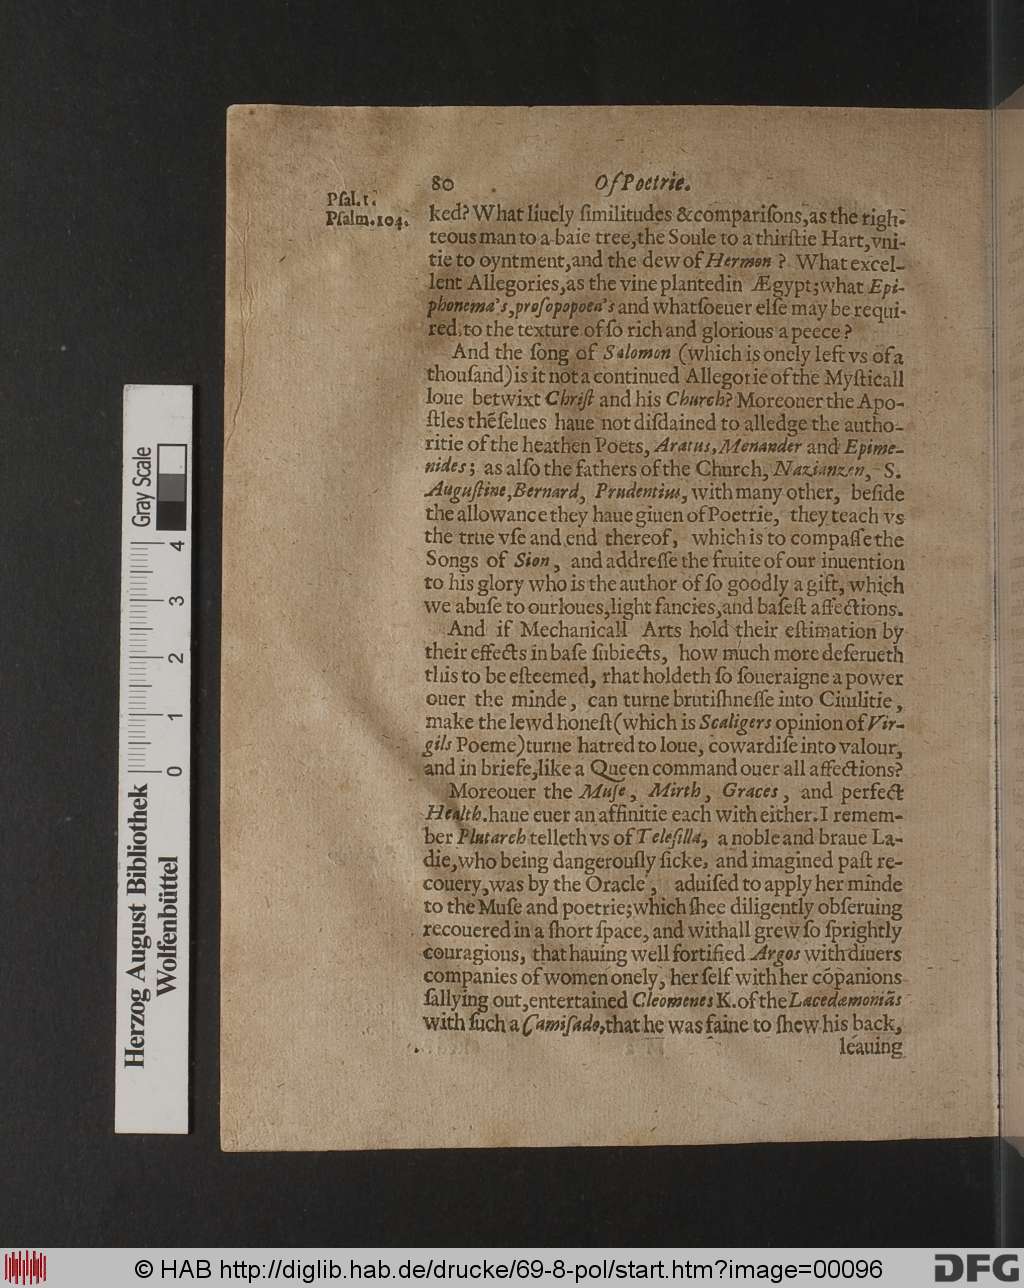 80 Of Poetrie.
Pſal. 1.
Pſalm. 104.
ked? What liuely ſimilitudes & compariſons, as the righ-
teous man to a baie tree, the Soule to a thirſtie Hart, vni-
tie to oyntment, and the dew of Hermon? What excel-
lent Allegories, as the vine planted in Ægypt; what Epi-
phonema's, proſopopoea's and whatſoeuer elſe may be requi-
red, to the texture of ſo rich and glorious a peece?
And the ſong of Salomon (which is onely left vs of a
thouſand) is it not a continued Allegorie of the Myſticall
loue betwixt Chriſt and his Church? Moreouer the Apo-
ſtles thēſelues haue not diſdained to alledge the autho-
ritie of the heathen Poets, Aratus, Menander and Epime-
nides; as alſo the fathers of the Church, Nazianzen, S.
Auguſtine, Bernard, Prudentius, with many other, beſide
the allowance they haue giuen of Poetrie, they teach vs
the true vſe and end thereof, which is to compaſſe the
Songs of Sion, and addreſſe the fruite of our inuention
to his glory who is the author of ſo goodly a gift, which
we abuſe to our loues, light fancies, and baſeſt affections.
And if Mechanicall Arts hold their eſtimation by
their effects in baſe ſubiects, how much more deſerueth
this to be eſteemed, rhat holdeth ſo ſoueraigne a power
ouer the minde, can turne brutiſhneſſe into Ciuilitie,
make the lewd honeſt (which is Scaligers opinion of Vir-
gils Poeme) turne hatred to loue, cowardiſe into valour,
and in briefe, like a Queen command ouer all affections?
Moreouer the Muſe, Mirth, Graces, and perfect
Health. haue euer an affinitie each with either. I remem-
ber Plutarch telleth vs of Teleſilla, a noble and braue La-
die, who being dangerouſly ſicke, and imagined paſt re-
couery, was by the Oracle, aduiſed to apply her minde
to the Muſe and poetrie; which ſhee diligently obſeruing
recouered in a ſhort ſpace, and withall grew ſo ſprightly
couragious, that hauing well fortified Argos with diuers
companies of women onely, her ſelf with her cōpanions
ſallying out, entertained Cleomenes K. of the Lacedæmoniās
with ſuch a Camiſado, that he was faine to ſhew his back,
leauing
Gray Scale
0 1 2 3 4
Herzog August Bibliothek
Wolfenbüttel
© HAB http://diglib.hab.de/drucke/69-8-pol/start.htm?image=00096
DFG